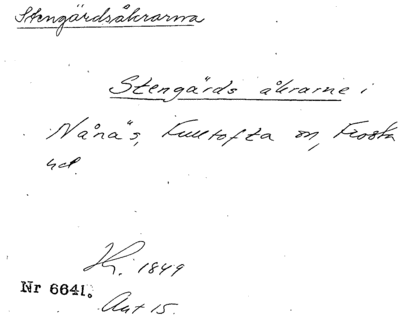 Stengärdsåkrarna
Stengärds åkrarne i
Nånäs, Fulltofta sn, Frosta
hd.
1849
Nr 6641.
Akt 15.